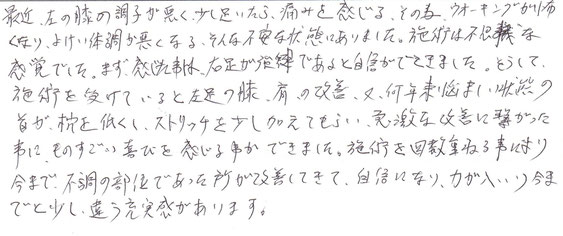 最近、左の膝の調子が悪く、少し足いたみ、痛みを感じる、その為、ウオーキングが怖
くなり、よけい体調が悪くなる、そんな不安な状態にありました。施術は不思議な
感覚でした。まず感じた事は、右足が復縁であると自信ができました。そうして、
施術を受けていると左足の膝、肩、の改善、又、何年来悩ましい状態の
首が、枕を低くし、ストリッチを少し加えてもらい、急激な改善に繋がった
事に、ものすごい喜びを感じる事ができました。施術を回数重ねる事により
今まで、不調の部位であった所が改善してきて、自信になり、力が入いり今ま
でと少し違う充実感があります。